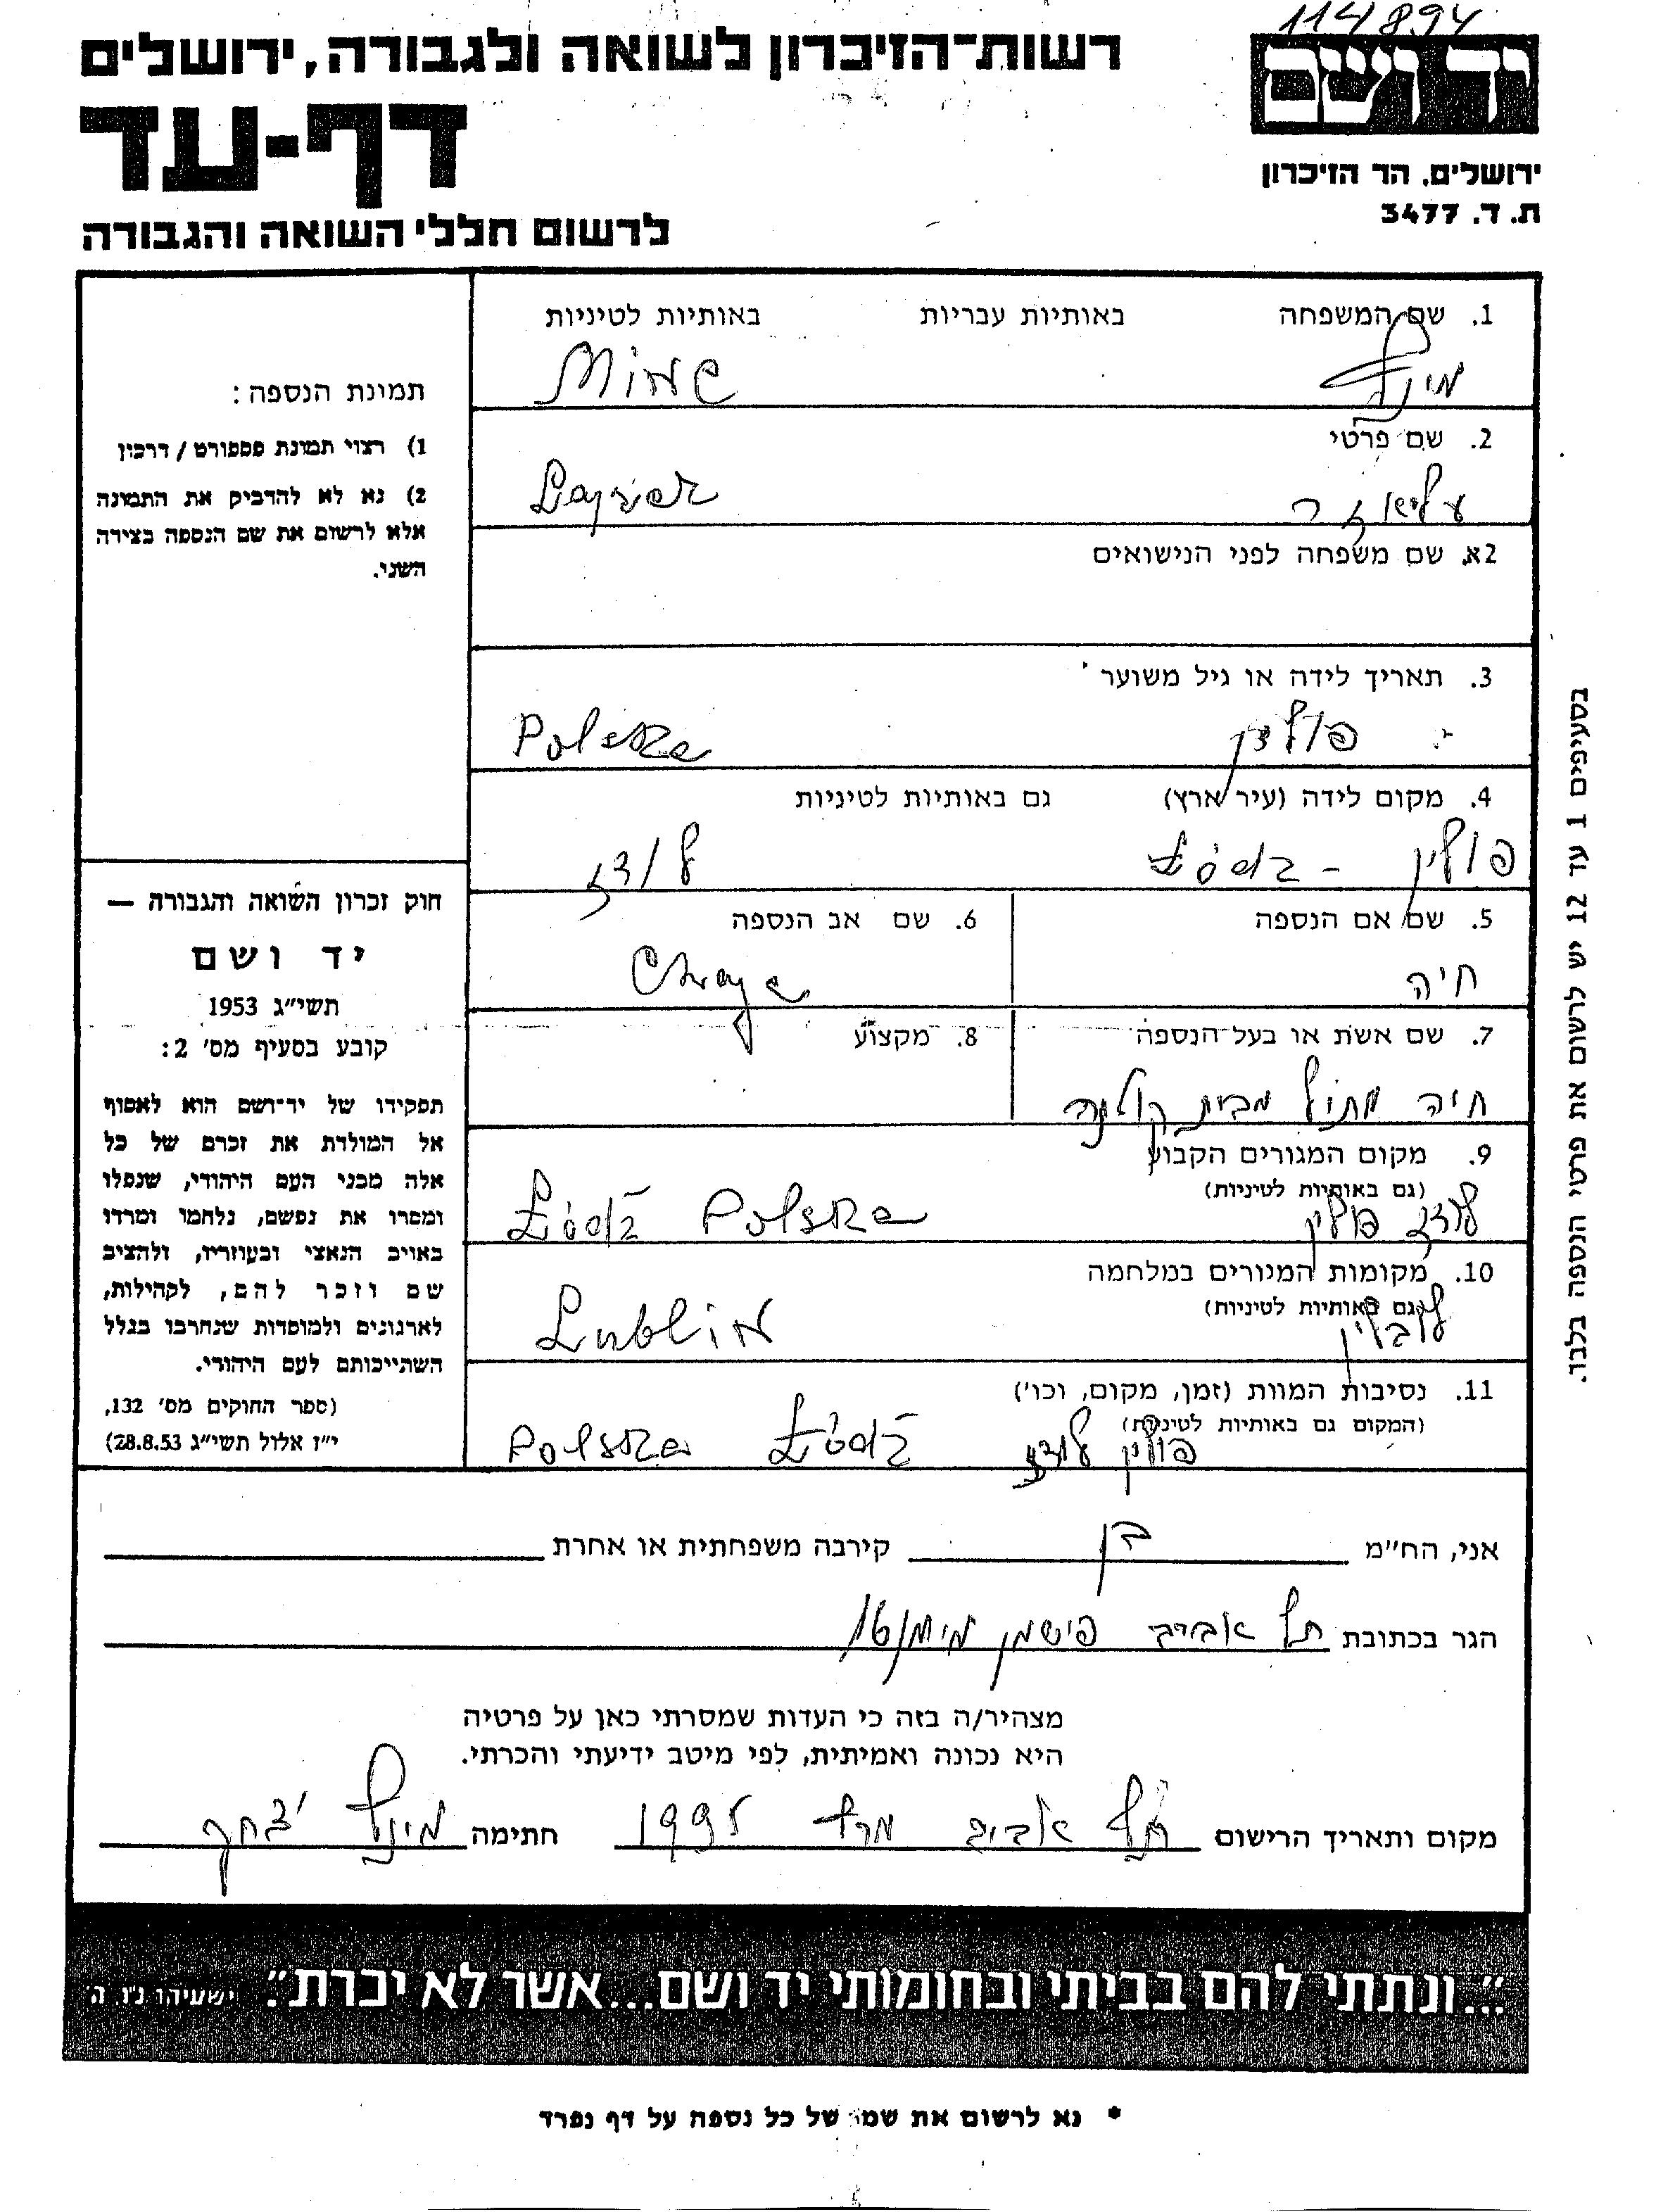 114894
רשות-הזיכרון לשואה ולגבורה, ירושלים
יד ושם
דף-עד
ירושלים, הר הזיכרון
ת. ד. 3477
לרשום חללי השואה והגבורה
1. שם המשפחה באותיות עבריות באותיות לטיניות
מינץ Minc
2. שם פרטי
Lajzer
2א. שם משפחה לפני הנישואים
3. תאריך לידה או גיל משוער
Polska
4. מקום לידה (עיר ארץ) גם באותיות לטיניות
פולין - Łódź לודז
5. שם אם הנספה 6. שם אב הנספה
חיה Chaya
7. שם אשת או בעל הנספה 8. מקצוע
חיה מבית
9. מקום המגורים הקבוע
(גם באותיות לטיניות)
לודז פולין Łódź Polska
10. מקומות המגורים במלחמה
(גם באותיות לטיניות)
לובלין Lublin
11. נסיבות המוות (זמן, מקום, וכו')
(המקום גם באותיות לטיניות)
פולין לודז Łódź Polska
תמונת הנספה:
1) רצוי תמונת פספורט / דרכון
2) נא לא להדביק את התמונה
אלא לרשום את שם הנספה בצידה
השני.
חוק זכרון השואה והגבורה —
יד ושם
תשי"ג 1953
קובע בסעיף מס' 2:
תפקידו של יד-ושם הוא לאסוף
אל המולדת את זכרם של כל
אלה מבני העם היהודי, שנפלו
ומסרו את נפשם, נלחמו ומרדו
באויב הנאצי ובעוזריו, ולהציב
שם וזכר להם, לקהילות,
לארגונים ולמוסדות שנחרבו בגלל
השתייכותם לעם היהודי.
(ספר החוקים מס' 132,
י"ז אלול תשי"ג 28.8.53)
בסעיפים 1 עד 12 יש לרשום את פרטי הנספה בלבד.
אני, הח"מ בן קירבה משפחתית או אחרת
הגר בכתובת תל אביב פישמן מימון 16
מצהיר/ה בזה כי העדות שמסרתי כאן על פרטיה
היא נכונה ואמיתית, לפי מיטב ידיעתי והכרתי.
מקום ותאריך הרישום תל אביב מרץ 1995 חתימה מינץ יצחק
"...ונתתי להם בביתי ובחומותי יד ושם...אשר לא יכרת". ישעיהו נ"ו ה'
* נא לרשום את שמו של כל נספה על דף נפרד